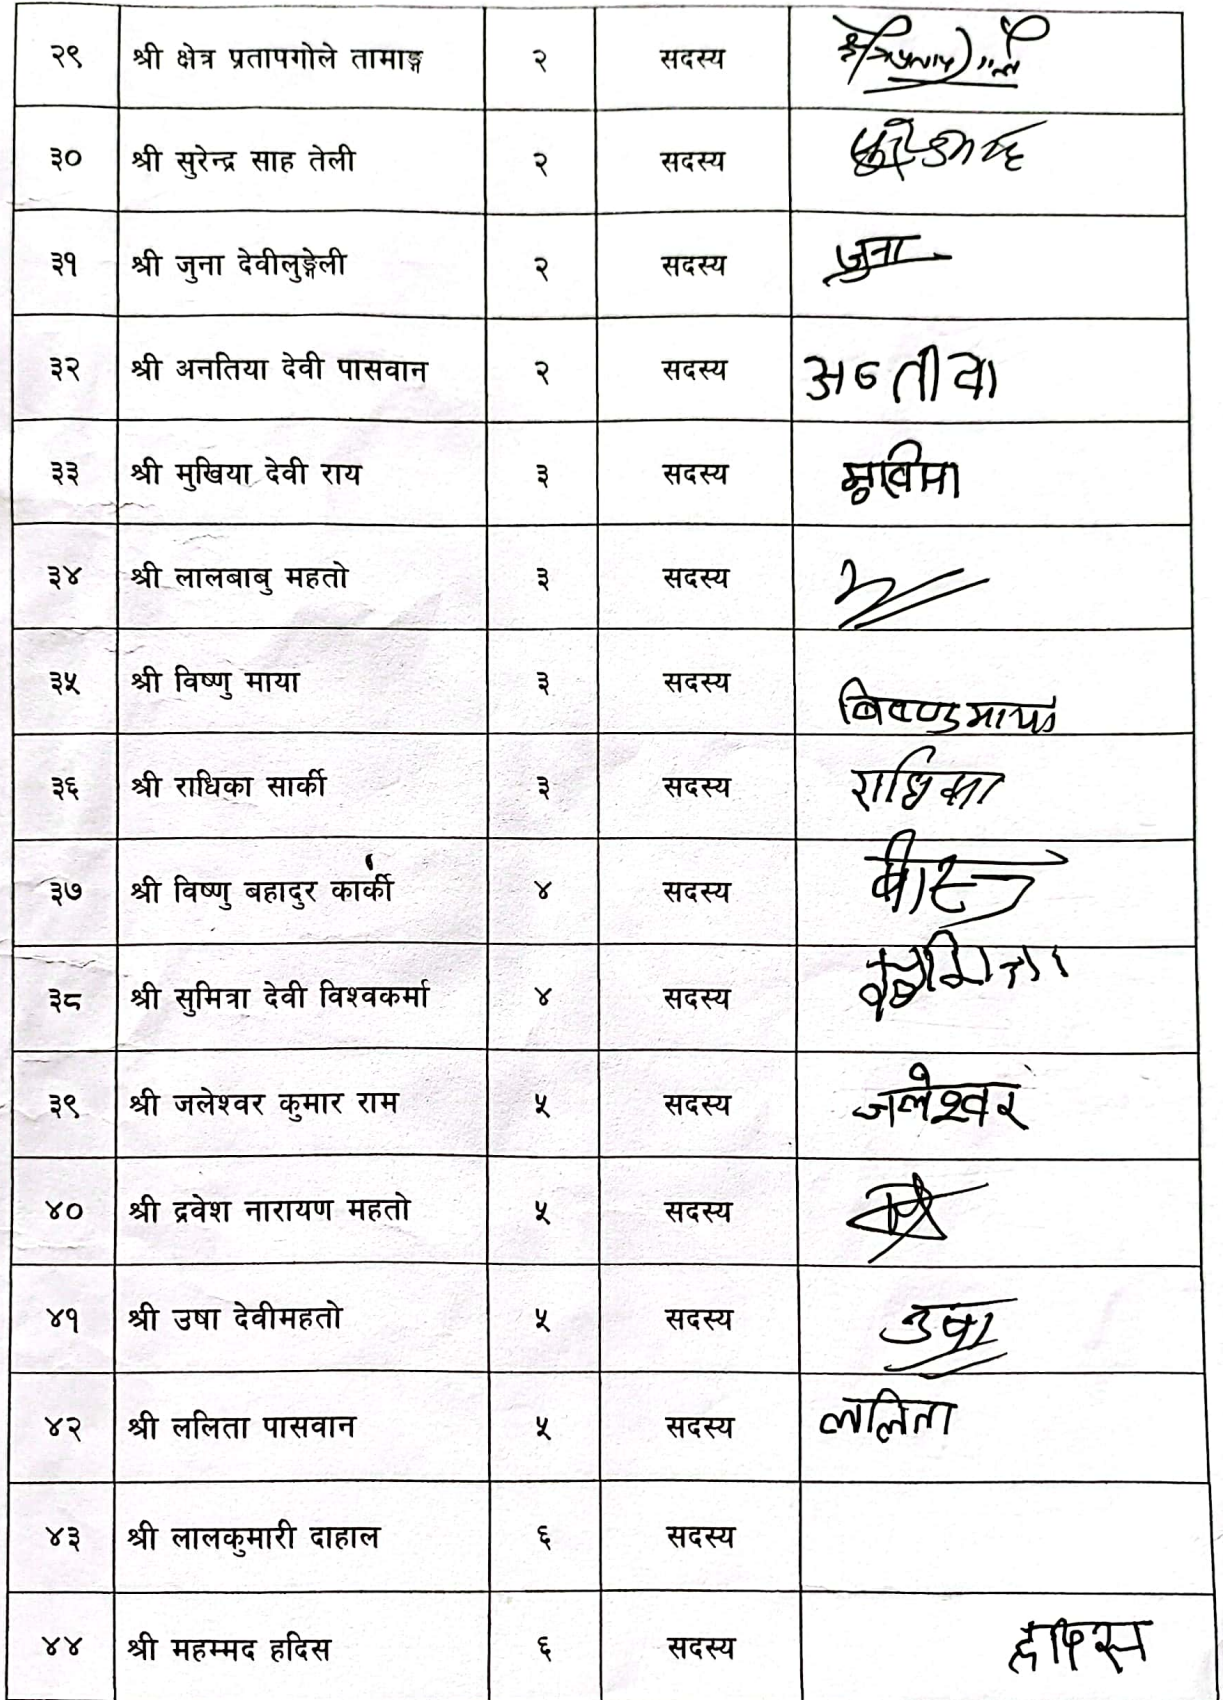 २९ श्री क्षेत्र प्रतापगोले तामाङ्ग २ सदस्य
३० श्री सुरेन्द्र साह तेली २ सदस्य
३१ श्री जुना देवीलुङ्गेली २ सदस्य जुना
३२ श्री अनतिया देवी पासवान २ सदस्य
३३ श्री मुखिया देवी राय ३ सदस्य
३४ श्री लालबाबु महतो ३ सदस्य
३५ श्री विष्णु माया ३ सदस्य
३६ श्री राधिका सार्की ३ सदस्य राधिका
३७ श्री विष्णु बहादुर कार्की ४ सदस्य
३८ श्री सुमित्रा देवी विश्वकर्मा ४ सदस्य
३९ श्री जलेश्वर कुमार राम ५ सदस्य जलेश्वर
४० श्री द्रवेश नारायण महतो ५ सदस्य
४१ श्री उषा देवीमहतो ५ सदस्य उषा
४२ श्री ललिता पासवान ५ सदस्य
४३ श्री लालकुमारी दाहाल ६ सदस्य
४४ श्री महम्मद हदिस ६ सदस्य